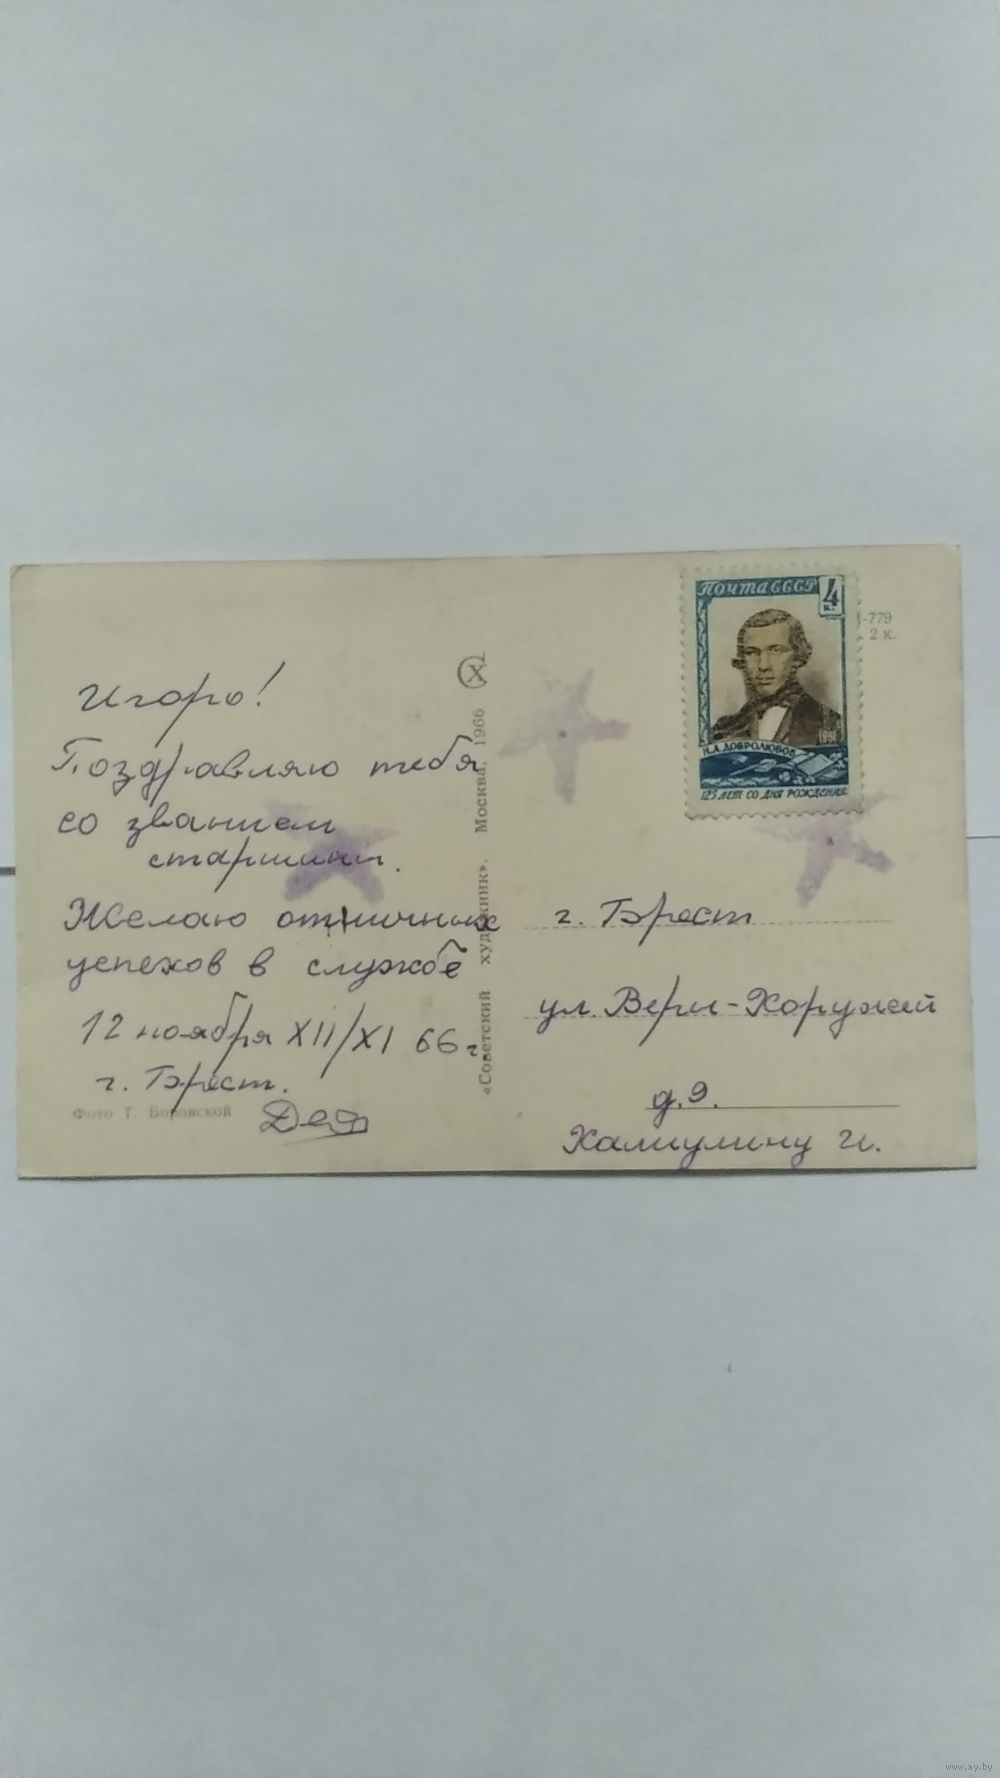 Игорь!
Поздравляю тебя
со званием
старшины.
Желаю отличных
успехов в службе
12 ноября XII/XI 66 г.
г. Брест.
Фото Т. Боровской
«Советский художник». Москва. 1966
Почта СССР 4 к.
1961
Н.А. ДОБРОЛЮБОВ
125 ЛЕТ СО ДНЯ РОЖДЕНИЯ
-779
2 к.
г. Брест
ул. Веры-Хоружей
д. 9.
Халиулину И.
www.ay.by